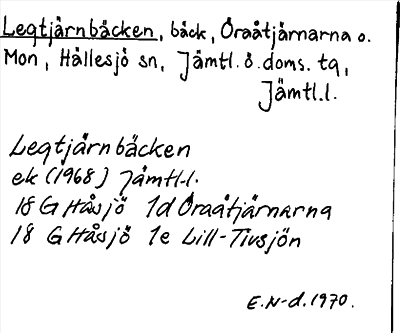 Legtjärnbäcken, bäck, Öraåtjärnarna o.
Mon, Hällesjö sn, Jämtl. ö. doms. tg,
Jämtl.l.
Legtjärnbäcken
ek (1968) Jämtl.l.
18 G Håsjö 1d Öraåtjärnarna
18 G Håsjö 1e Lill-Tivsjön
E.N-d. 1970.